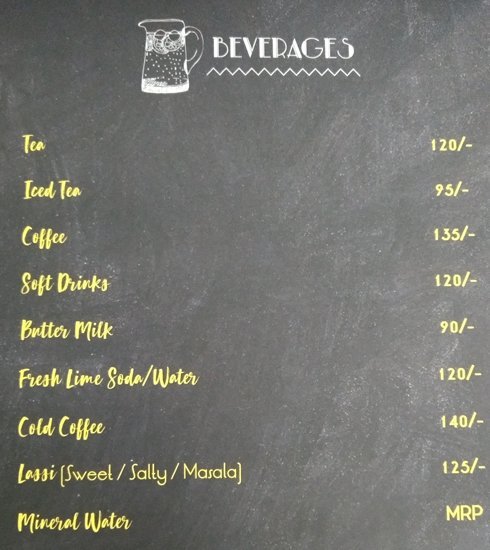 BEVERAGES
Tea 120/-
Iced Tea 95/-
Coffee 135/-
Soft Drinks 120/-
Butter Milk 90/-
Fresh Lime Soda/Water 120/-
Cold Coffee 140/-
Lassi (Sweet / Salty / Masala) 125/-
Mineral Water MRP